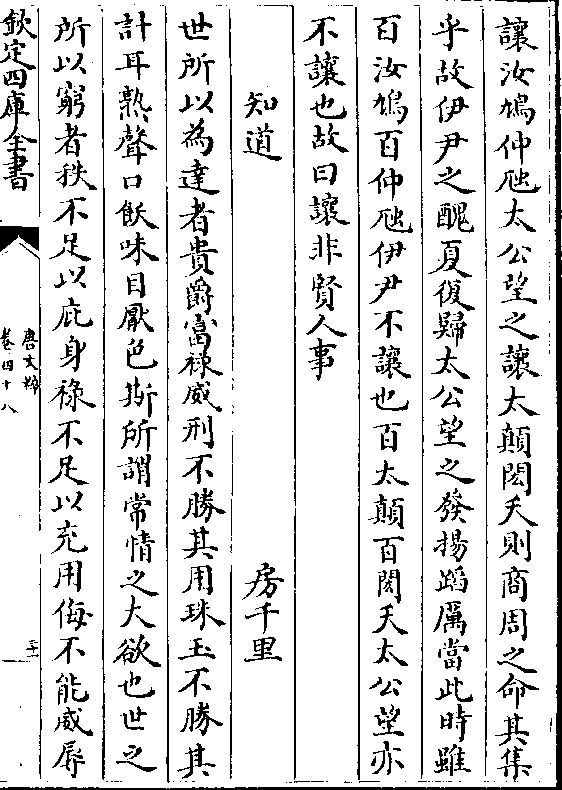 讓汝鳩仲虺太公望之讓太顛閎夭則商周之命其集
乎故伊尹之醜夏復歸太公望之發揚蹈厲當此時雖
百汝鳩百仲虺伊尹不讓也百太顛百閎夭太公望亦
不讓也故曰讓非賢人事
知道 房千里
世所以為達者貴爵富祿威刑不勝其用珠玉不勝其
計耳熟聲口飫味目厭色斯所謂常情之大欲也世之
所以窮者秩不足以庇身祿不足以充用侮不能威辱
欽定四庫全書
唐文粹
卷四十八